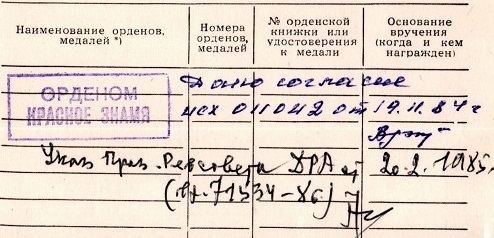 Наименование орденов, медалей *)
Номера орденов, медалей
№ орденской книжки или удостоверения к медали
Основание вручения (когда и кем награжден)
ОРДЕНОМ
КРАСНОЕ ЗНАМЯ
Дано согласие
исх 011042 от 19.11.84 г
Указ През. Ревсовета ДРА от 20.2.1985